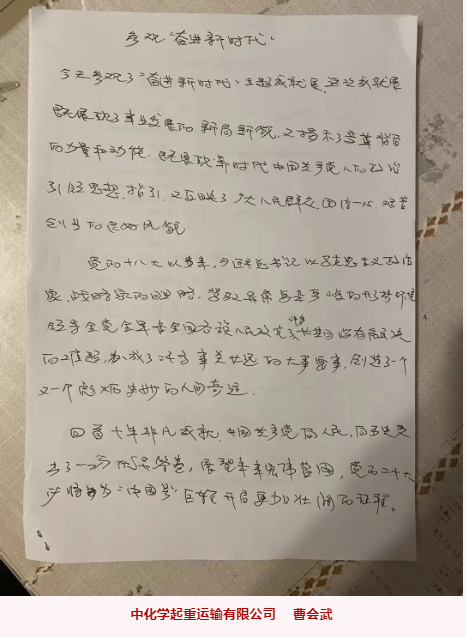 参观“奋进新时代”
今天参观了“奋进新时代”主题成就展,这次成就展
既展现了事业发展的新局新貌,又揭示了变革背后
的力量和动能。既展现新时代中国共产党人的政治
引领思想指引,又反映了广大人民群众团结一心、
创当的良好风貌
党的十八大以来,习近平总书记以马克思主义政治
家、战略家的
领导全党全军全国各族人民
的难题,办成了许多事关长远的大事要事,创造了一个
又一个彪炳史册的人间奇迹。
回首十年非凡成就,中国共产党同人民、向历史交
了一份优异答卷,展望未来宏伟蓝图,党的二十大
必将为“中国号”巨轮开启更加壮阔的征程。
中化学起重运输有限公司 曹会武